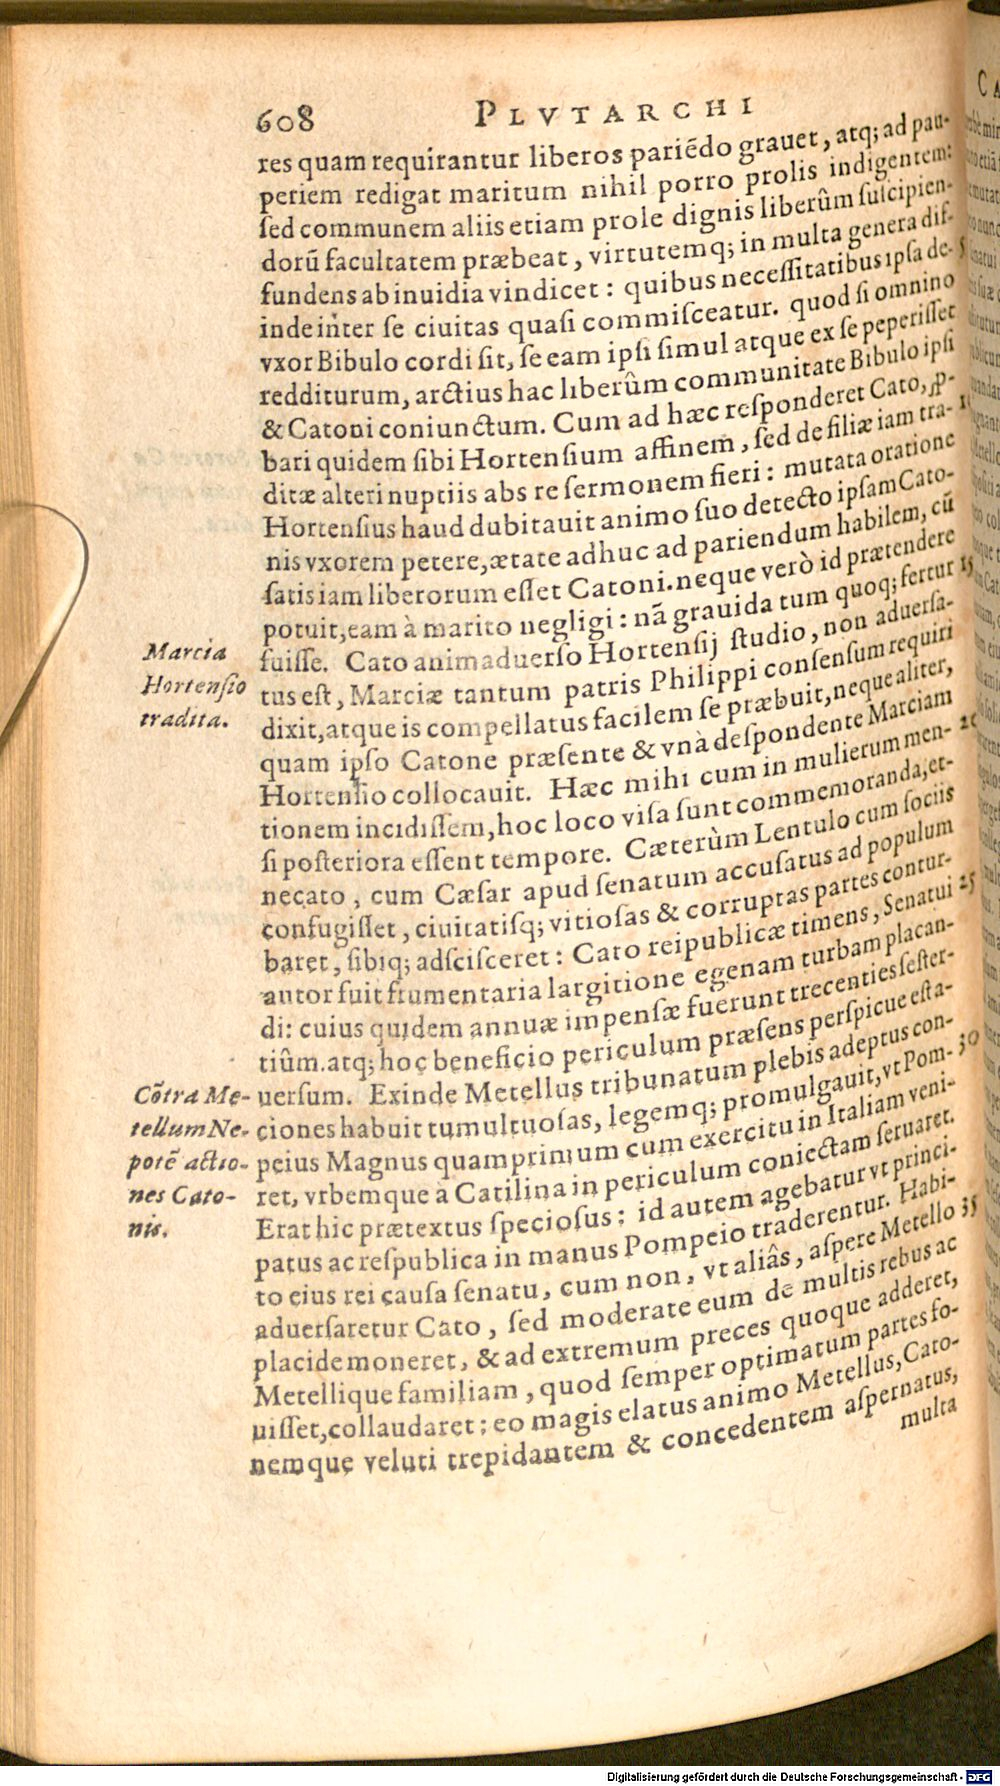 608 PLVTARCHI
res quam requirantur liberos pariēdo grauet, atq; ad pau-
periem redigat maritum nihil porro prolis indigentem:
ſed communem aliis etiam prole dignis liberûm ſuſcipien-
dorũ facultatem præbeat, virtutemq; in multa genera dif-
fundens ab inuidia vindicet: quibus neceſſitatibus ipſa de- 5
inde inter ſe ciuitas quaſi commiſceatur. quod ſi omnino
vxor Bibulo cordi ſit, ſe eam ipſi ſimul atque ex ſe peperiſſet
redditurum, arctius hac liberûm communitate Bibulo ipſi
& Catoni coniunctum. Cum ad hæc reſponderet Cato, ꝓ-
bari quidem ſibi Hortenſium affinem, ſed de filiæ iam tra- 10
ditæ alteri nuptiis abs re ſermonem fieri: mutata oratione
Hortenſius haud dubitauit animo ſuo detecto ipſam Cato-
nis vxorem petere, ætate adhuc ad pariendum habilem, cũ
ſatis iam liberorum eſſet Catoni. neque verò id prætendere
potuit, eam à marito negligi: nã grauida tum quoq; fertur 15
fuiſſe. Cato animaduerſo Hortenſij ſtudio, non aduerſa-
tus eſt, Marciæ tantum patris Philippi conſenſum requiri
dixit, atque is compellatus facilem ſe præbuit, neque aliter,
quam ipſo Catone præſente & vnà deſpondente Marciam
Hortenſio collocauit. Hæc mihi cum in mulierum men- 20
tionem incidiſſem, hoc loco viſa ſunt commemoranda, et-
ſi poſteriora eſſent tempore. Cæterùm Lentulo cum ſociis
necato, cum Cæſar apud ſenatum accuſatus ad populum
confugiſſet, ciuitatiſq; vitioſas & corruptas partes contur-
baret, ſibiq; adſciſceret: Cato reipublicæ timens, Senatui 25
autor fuit frumentaria largitione egenam turbam placan-
di: cuius quidem annuæ impenſæ fuerunt trecenties ſeſter-
tiûm. atq; hoc beneficio periculum præſens perſpicue eſt a-
uerſum. Exinde Metellus tribunatum plebis adeptus con-
ciones habuit tumultuoſas, legemq; promulgauit, vt Pom- 30
peius Magnus quamprimum cum exercitu in Italiam veni-
ret, vrbemque à Catilina in periculum coniectam ſeruaret.
Erat hic prætextus ſpecioſus: id autem agebatur vt princi-
patus ac reſpublica in manus Pompeio traderentur. Habi-
to eius rei cauſa ſenatu, cum non, vt aliâs, aſpere Metello 35
aduerſaretur Cato, ſed moderate eum de multis rebus ac
placide moneret, & ad extremum preces quoque adderet,
Metellique familiam, quod ſemper optimatum partes fo-
uiſſet, collaudaret: eo magis elatus animo Metellus, Cato-
nemque veluti trepidantem & concedentem aſpernatus,
multa
Marcia
Hortenſio
tradita.
Cõtra Me-
tellum Ne-
potẽ actio-
nes Cato-
nis.
Digitalisierung gefördert durch die Deutsche Forschungsgemeinschaft - DFG